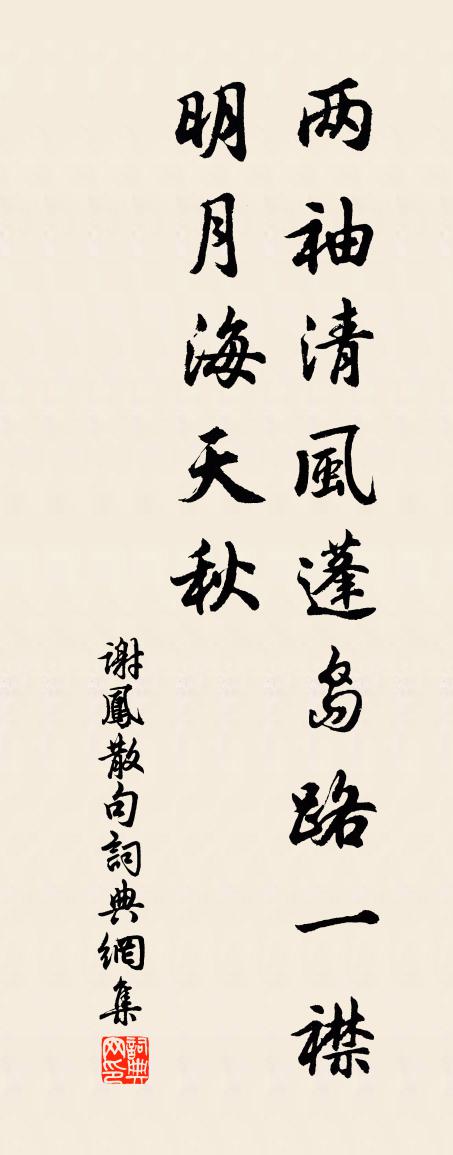 两袖清風蓬岛路一襟
明月海天秋
謝鳳散句詞典網集
詞典网印